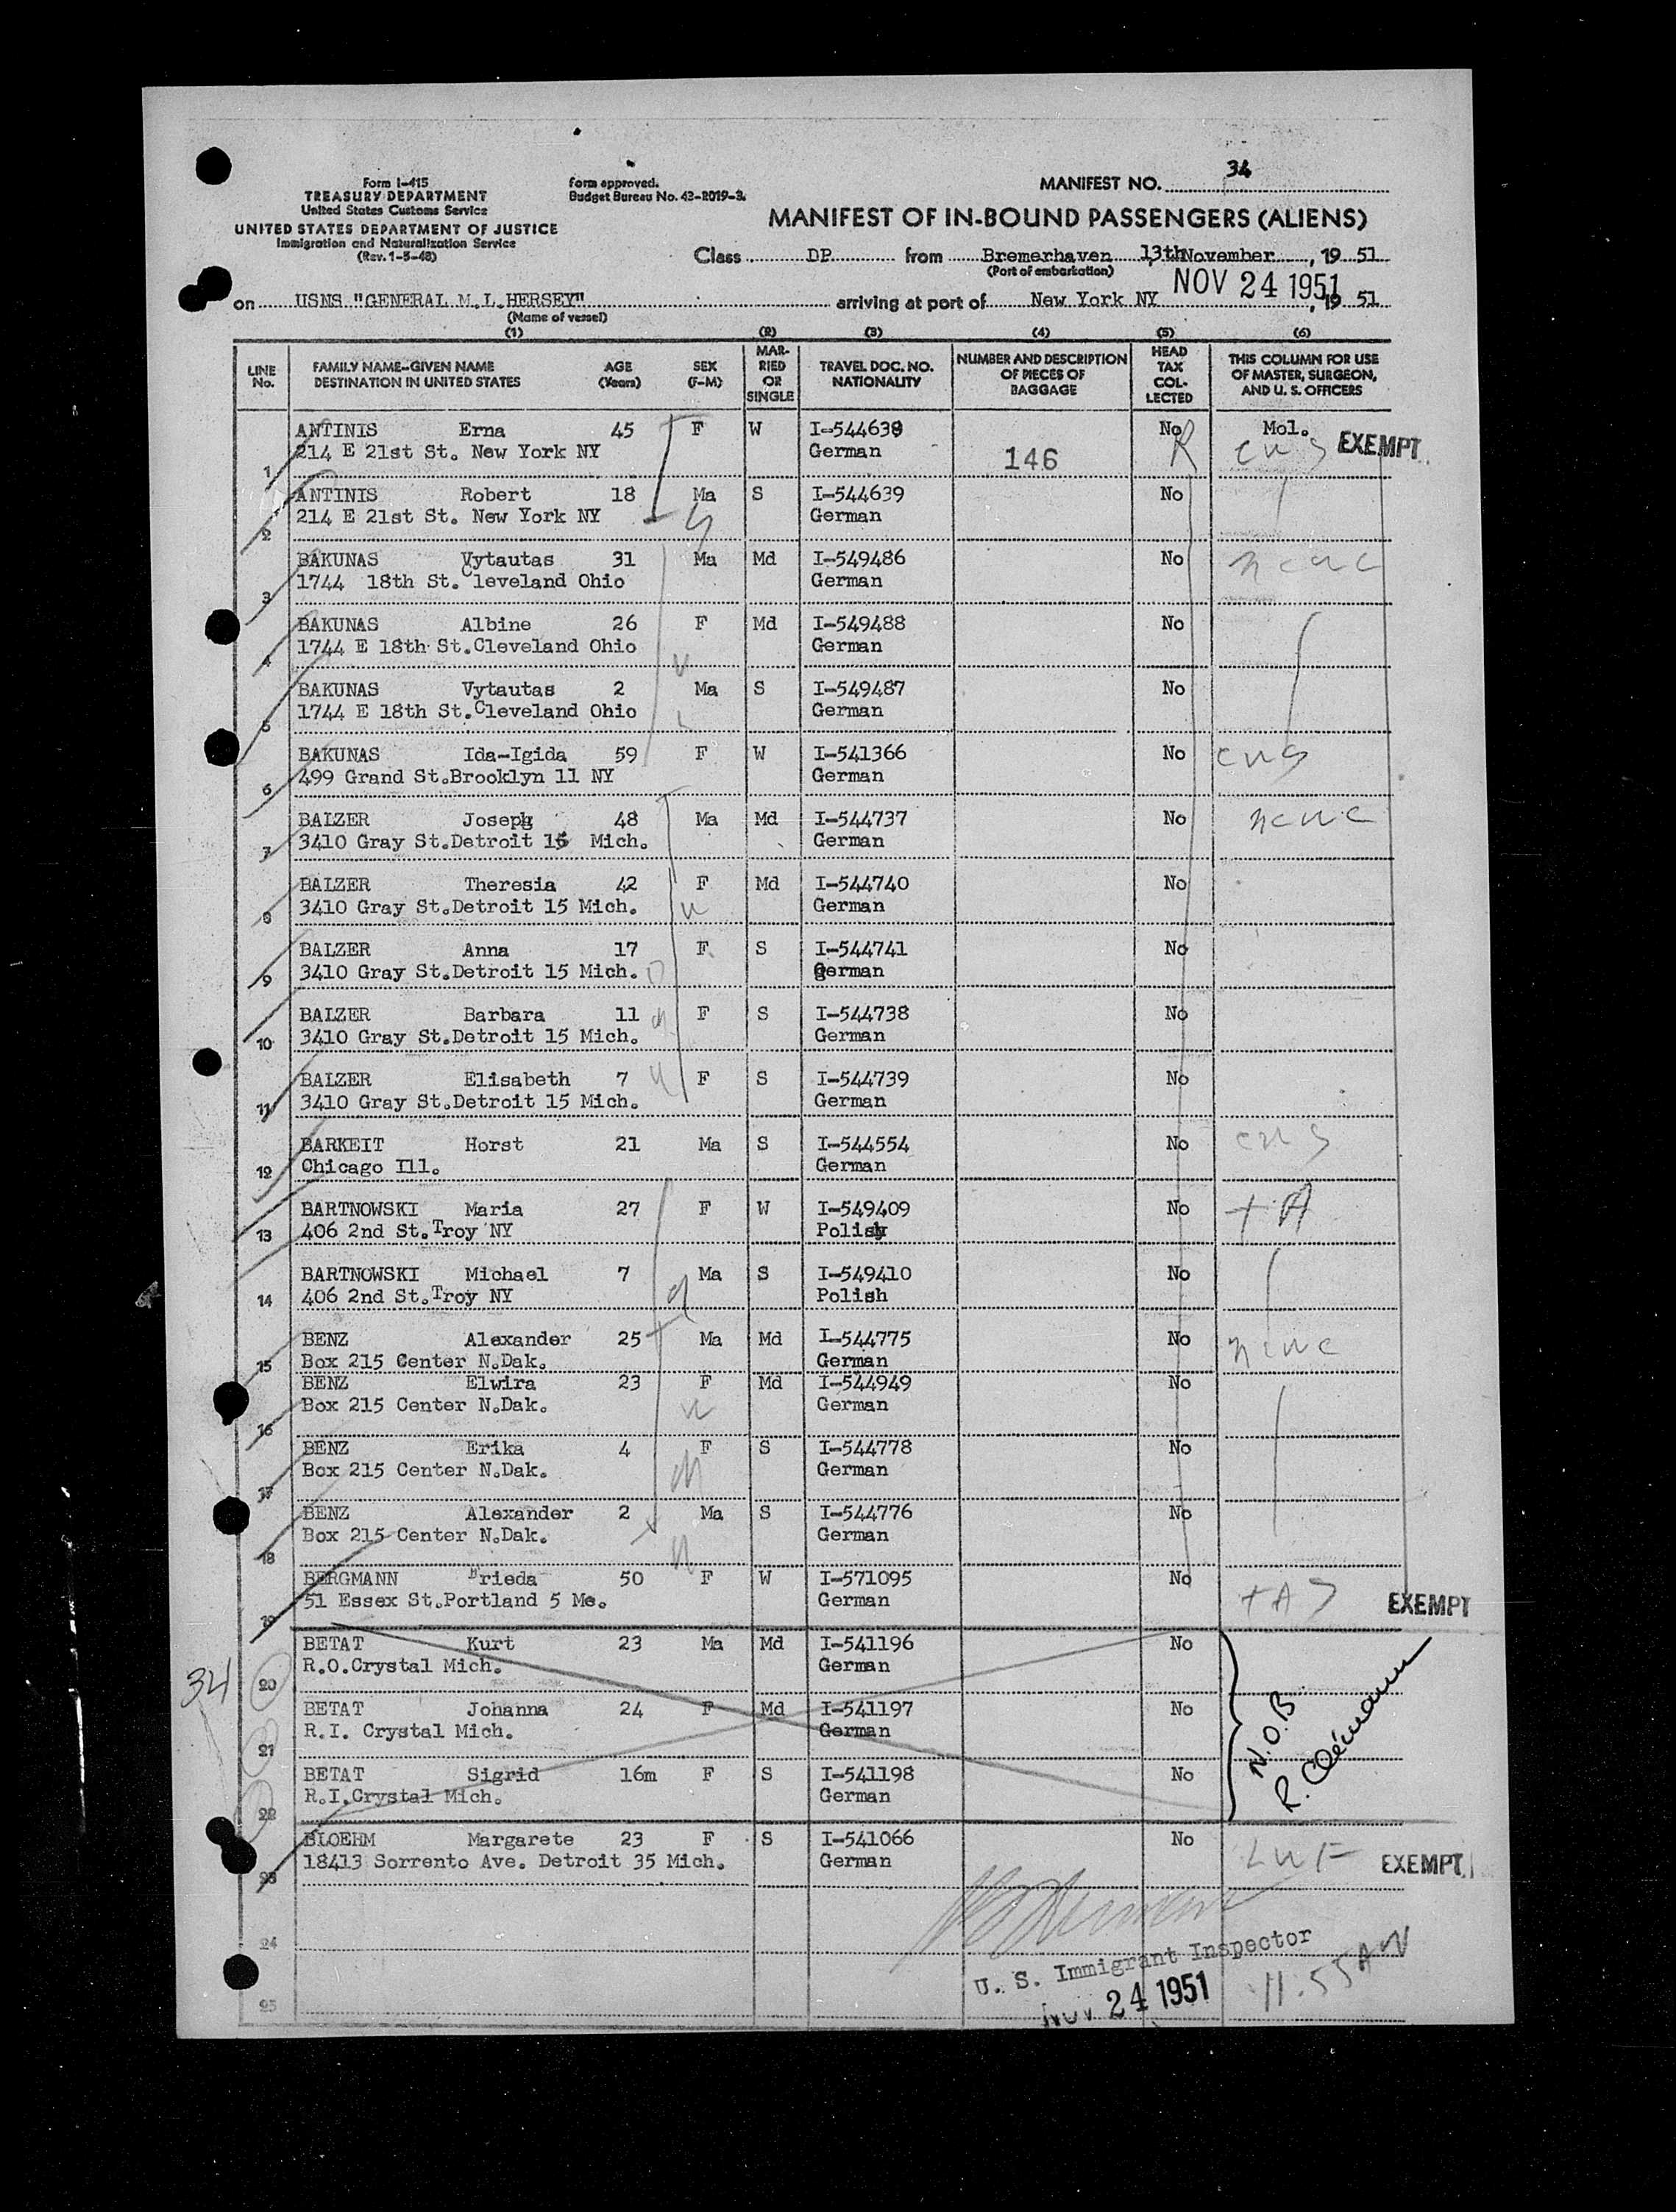 34
Form I-415
TREASURY DEPARTMENT
United States Customs Service
UNITED STATES DEPARTMENT OF JUSTICE
Immigration and Naturalization Service
(Rev. 1-5-48)
form approved.
Budget Bureau No. 43-R019-3.
MANIFEST NO. 34
MANIFEST OF IN-BOUND PASSENGERS (ALIENS)
Class DP from Bremerhaven 13th November, 19 51
(Port of embarkation)
NOV 24 1951
on USNS "GENERAL M.L.HERSEY" arriving at port of New York NY , 19 51
(Name of vessel)
(1) (2) (3) (4) (5) (6)
LINE No. FAMILY NAME-GIVEN NAME DESTINATION IN UNITED STATES AGE (Years) SEX (F-M) MAR-RIED OR SINGLE TRAVEL DOC. NO. NATIONALITY NUMBER AND DESCRIPTION OF PIECES OF BAGGAGE HEAD TAX COL-LECTED THIS COLUMN FOR USE OF MASTER, SURGEON, AND U. S. OFFICERS
ANTINIS Erna 45 F W I-544638 No Mol.
1 214 E 21st St. New York NY German 146 R cus EXEMPT
ANTINIS Robert 18 Ma S I-544639 No
2 214 E 21st St. New York NY German
BAKUNAS Vytautas 31 Ma Md I-549486 No ncwc
3 1744 18th St. Cleveland Ohio German
BAKUNAS Albine 26 F Md I-549488 No
4 1744 E 18th St.Cleveland Ohio German
BAKUNAS Vytautas 2 Ma S I-549487 No
5 1744 E 18th St.Cleveland Ohio German
BAKUNAS Ida-Igida 59 F W I-541366 No cws
6 499 Grand St.Brooklyn 11 NY German
BALZER Joseph 48 Ma Md I-544737 No ncwc
7 3410 Gray St.Detroit 15 Mich. German
BALZER Theresia 42 F Md I-544740 No
8 3410 Gray St.Detroit 15 Mich. German
BALZER Anna 17 F S I-544741 No
9 3410 Gray St.Detroit 15 Mich. German
BALZER Barbara 11 F S I-544738 No
10 3410 Gray St.Detroit 15 Mich. German
BALZER Elisabeth 7 F S I-544739 No
11 3410 Gray St.Detroit 15 Mich. German
BARKEIT Horst 21 Ma S I-544554 No cws
12 Chicago Ill. German
BARTNOWSKI Maria 27 F W I-549409 No + A
13 406 2nd St.Troy NY Polish
BARTNOWSKI Michael 7 Ma S I-549410 No
14 406 2nd St.Troy NY Polish
BENZ Alexander 25 Ma Md I-544775 No ncwc
15 Box 215 Center N.Dak. German
BENZ Elwira 23 F Md I-544949 No
16 Box 215 Center N.Dak. German
BENZ Erika 4 F S I-544778 No
17 Box 215 Center N.Dak. German
BENZ Alexander 2 Ma S I-544776 No
18 Box 215 Center N.Dak. German
BERGMANN Frieda 50 F W I-571095 No
19 51 Essex St.Portland 5 Me. German EXEMPT
BETAT Kurt 23 Ma Md I-541196 No
20 R.O.Crystal Mich. German
BETAT Johanna 24 F Md I-541197 No
21 R.I. Crystal Mich. German
BETAT Sigrid 16m F S I-541198 No
22 R.I.Crystal Mich. German
N.O.B
34
BLOEHM Margarete 23 F S I-541066 No LWF
23 18413 Sorrento Ave. Detroit 35 Mich. German EXEMPT
24
U. S. Immigrant Inspector
25 NOV 24 1951 11.55 AM